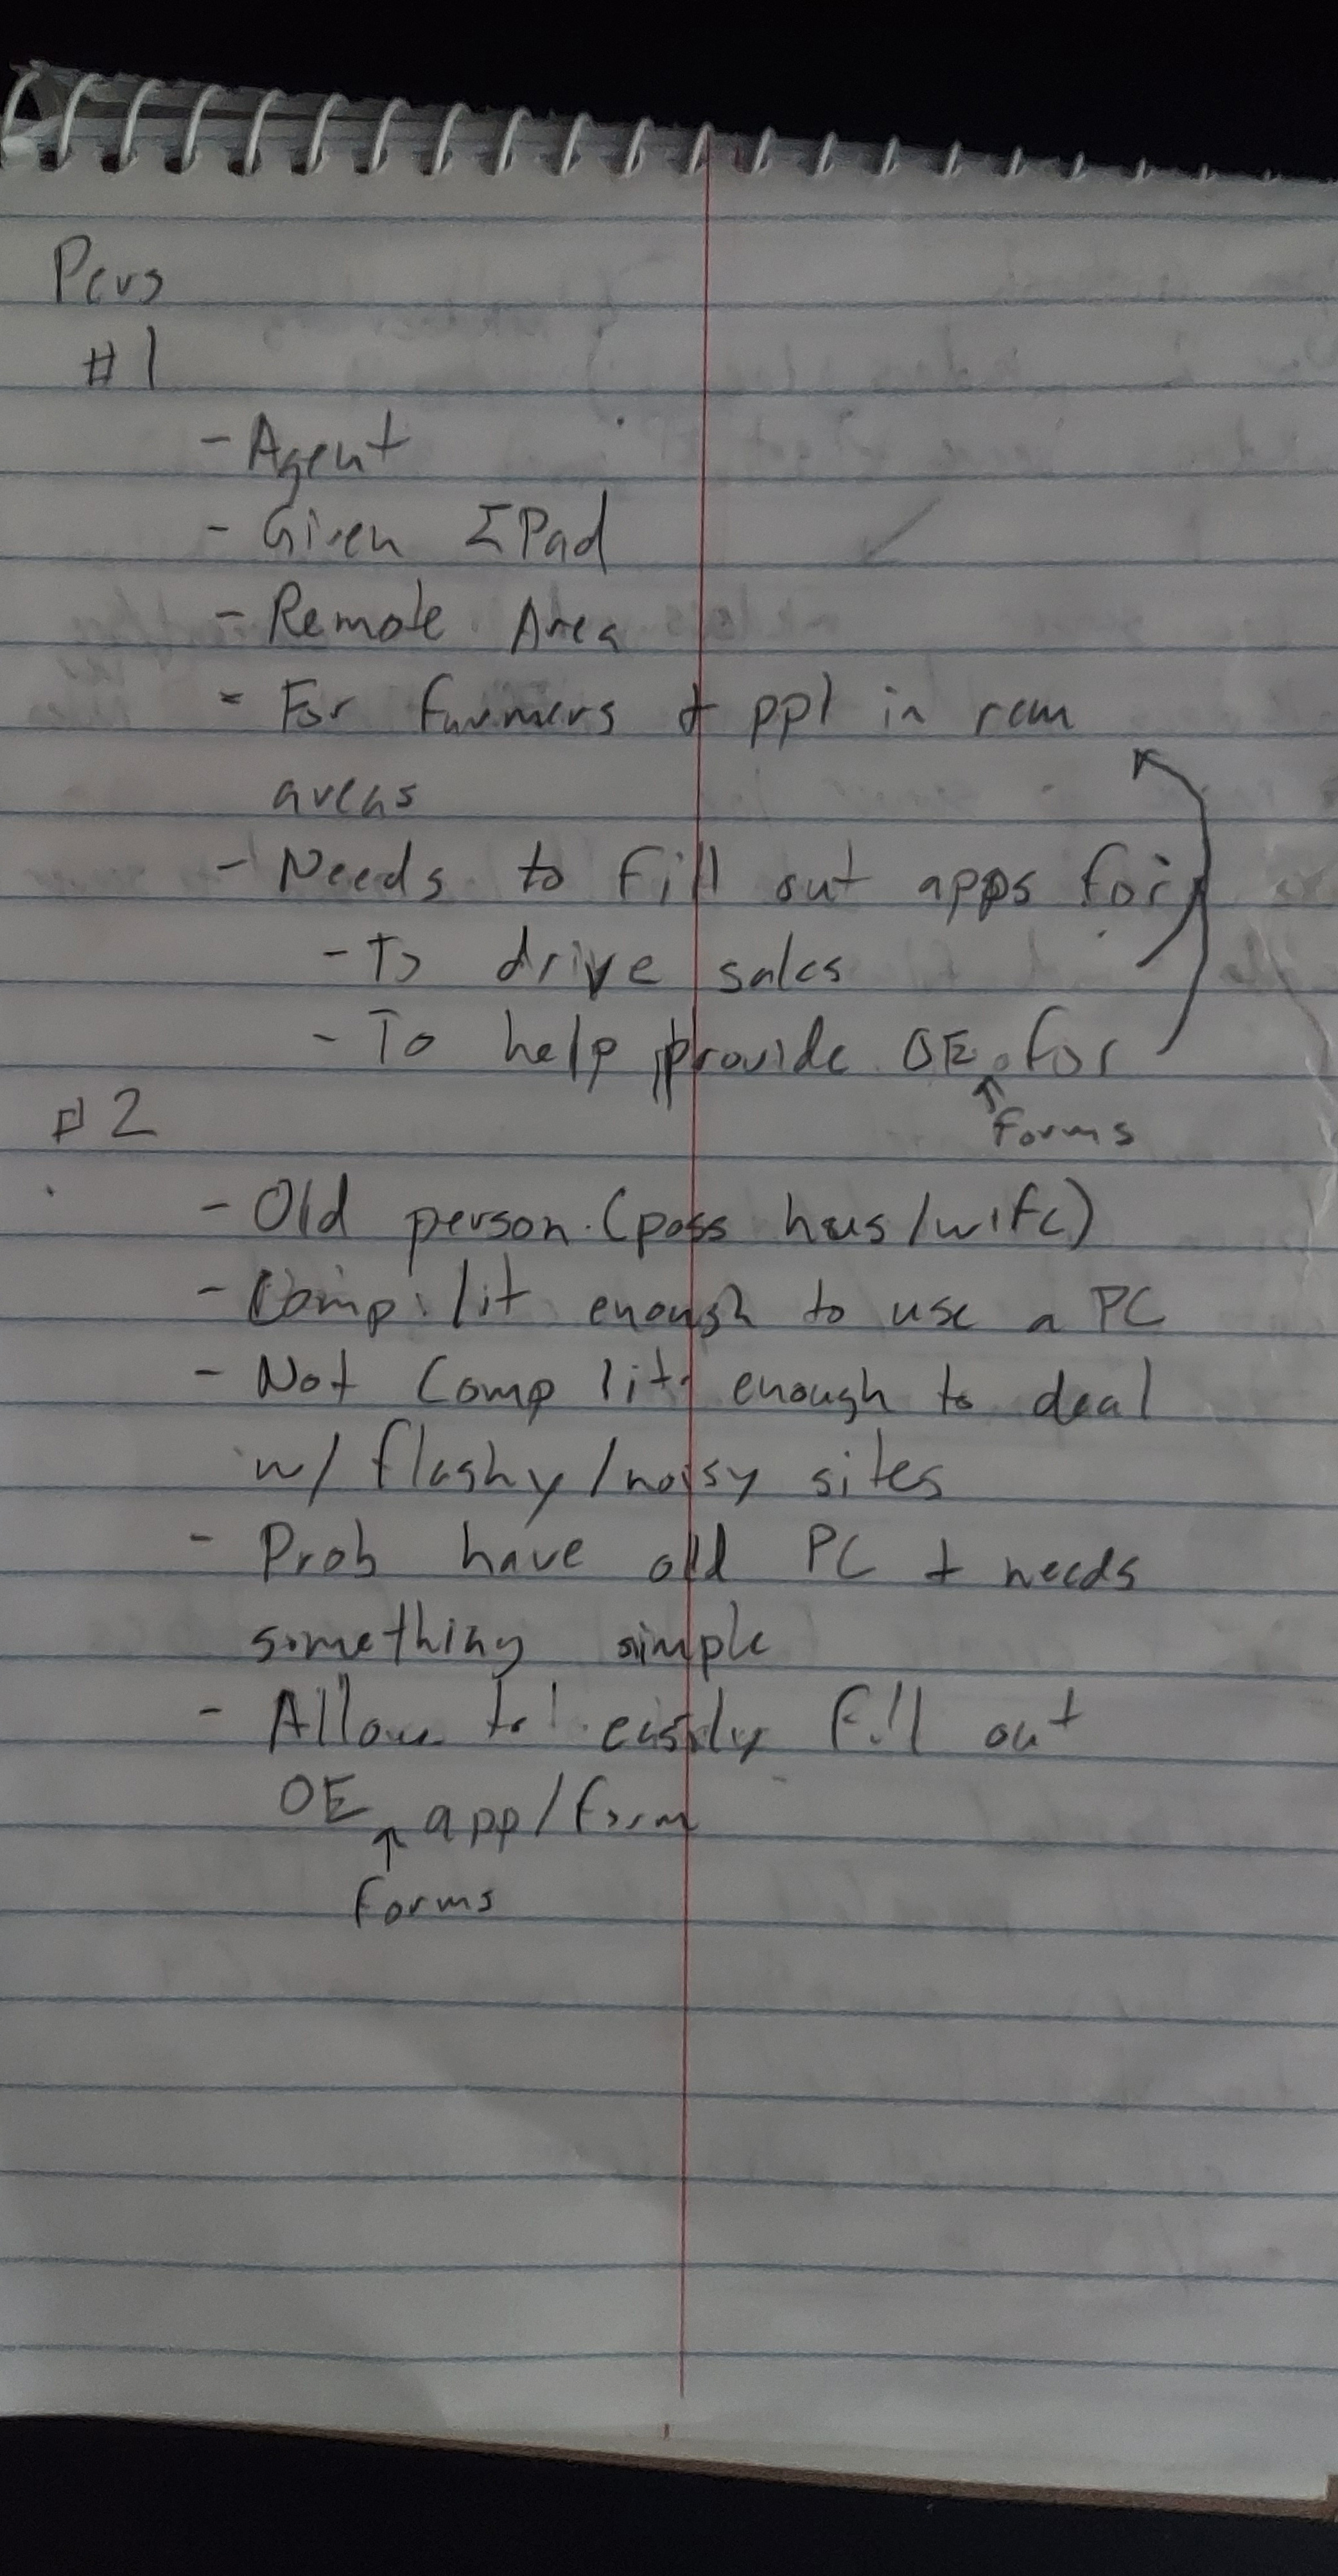 Pers
#1
- Agent
- Given IPad
- Remote Area
- For farmers + ppl in rem
areas
- Needs to fill out apps for
- To drive sales
- To help provide OE for
forms
#2
- Old person (poss hus/wife)
- Comp lit enough to use a PC
- Not Comp lit enough to deal
w/ flashy/noisy sites
- Prob have old PC + needs
something simple
- Allow to easily fill out
OE app/form
forms